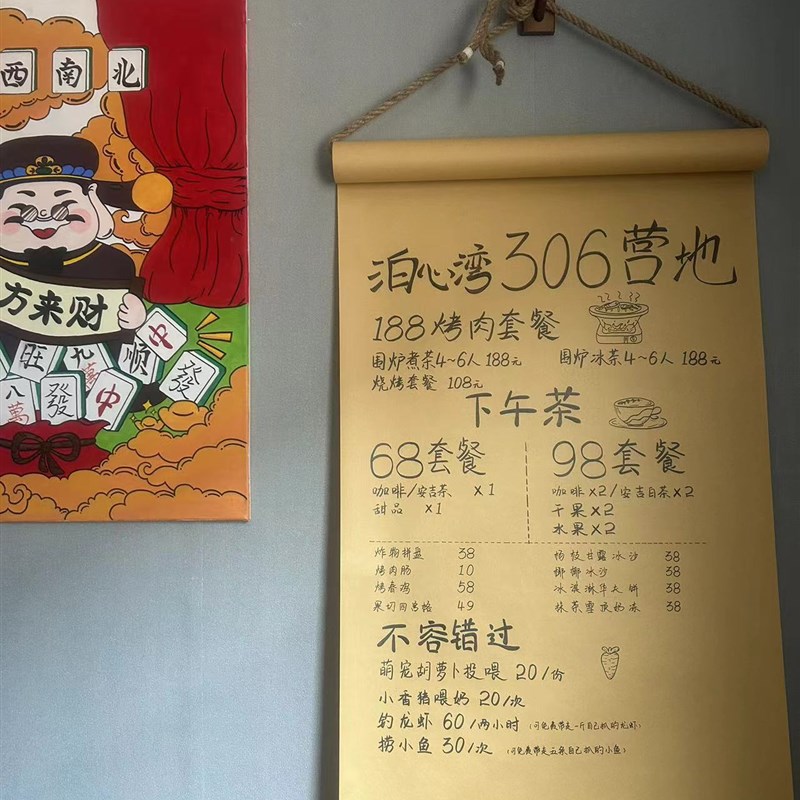 西 南 北
方来财
中
旺 九萬 順
八萬 發 中 發
泊心湾306营地
188烤肉套餐
围炉煮茶4~6人 188元 围炉冰茶4~6人 188元
烧烤套餐 108元
下午茶
68套餐
咖啡/安吉茶 X1
甜品 X1
98套餐
咖啡X2/安吉白茶X2
干果X2
水果X2
炸物拼盘 38
烤肉肠 10
烤春鸡 58
果切 49
杨枝甘露冰沙 38
椰椰冰沙 38
冰淇淋华夫饼 38
抹茶雪夜奶冻 38
不容错过
萌宠胡萝卜投喂 20/份
小香猪喂奶 20/次
钓龙虾 60/两小时 (可免费带走一斤自己抓的龙虾)
捞小鱼 30/次 (可免费带走五条自己抓的小鱼)